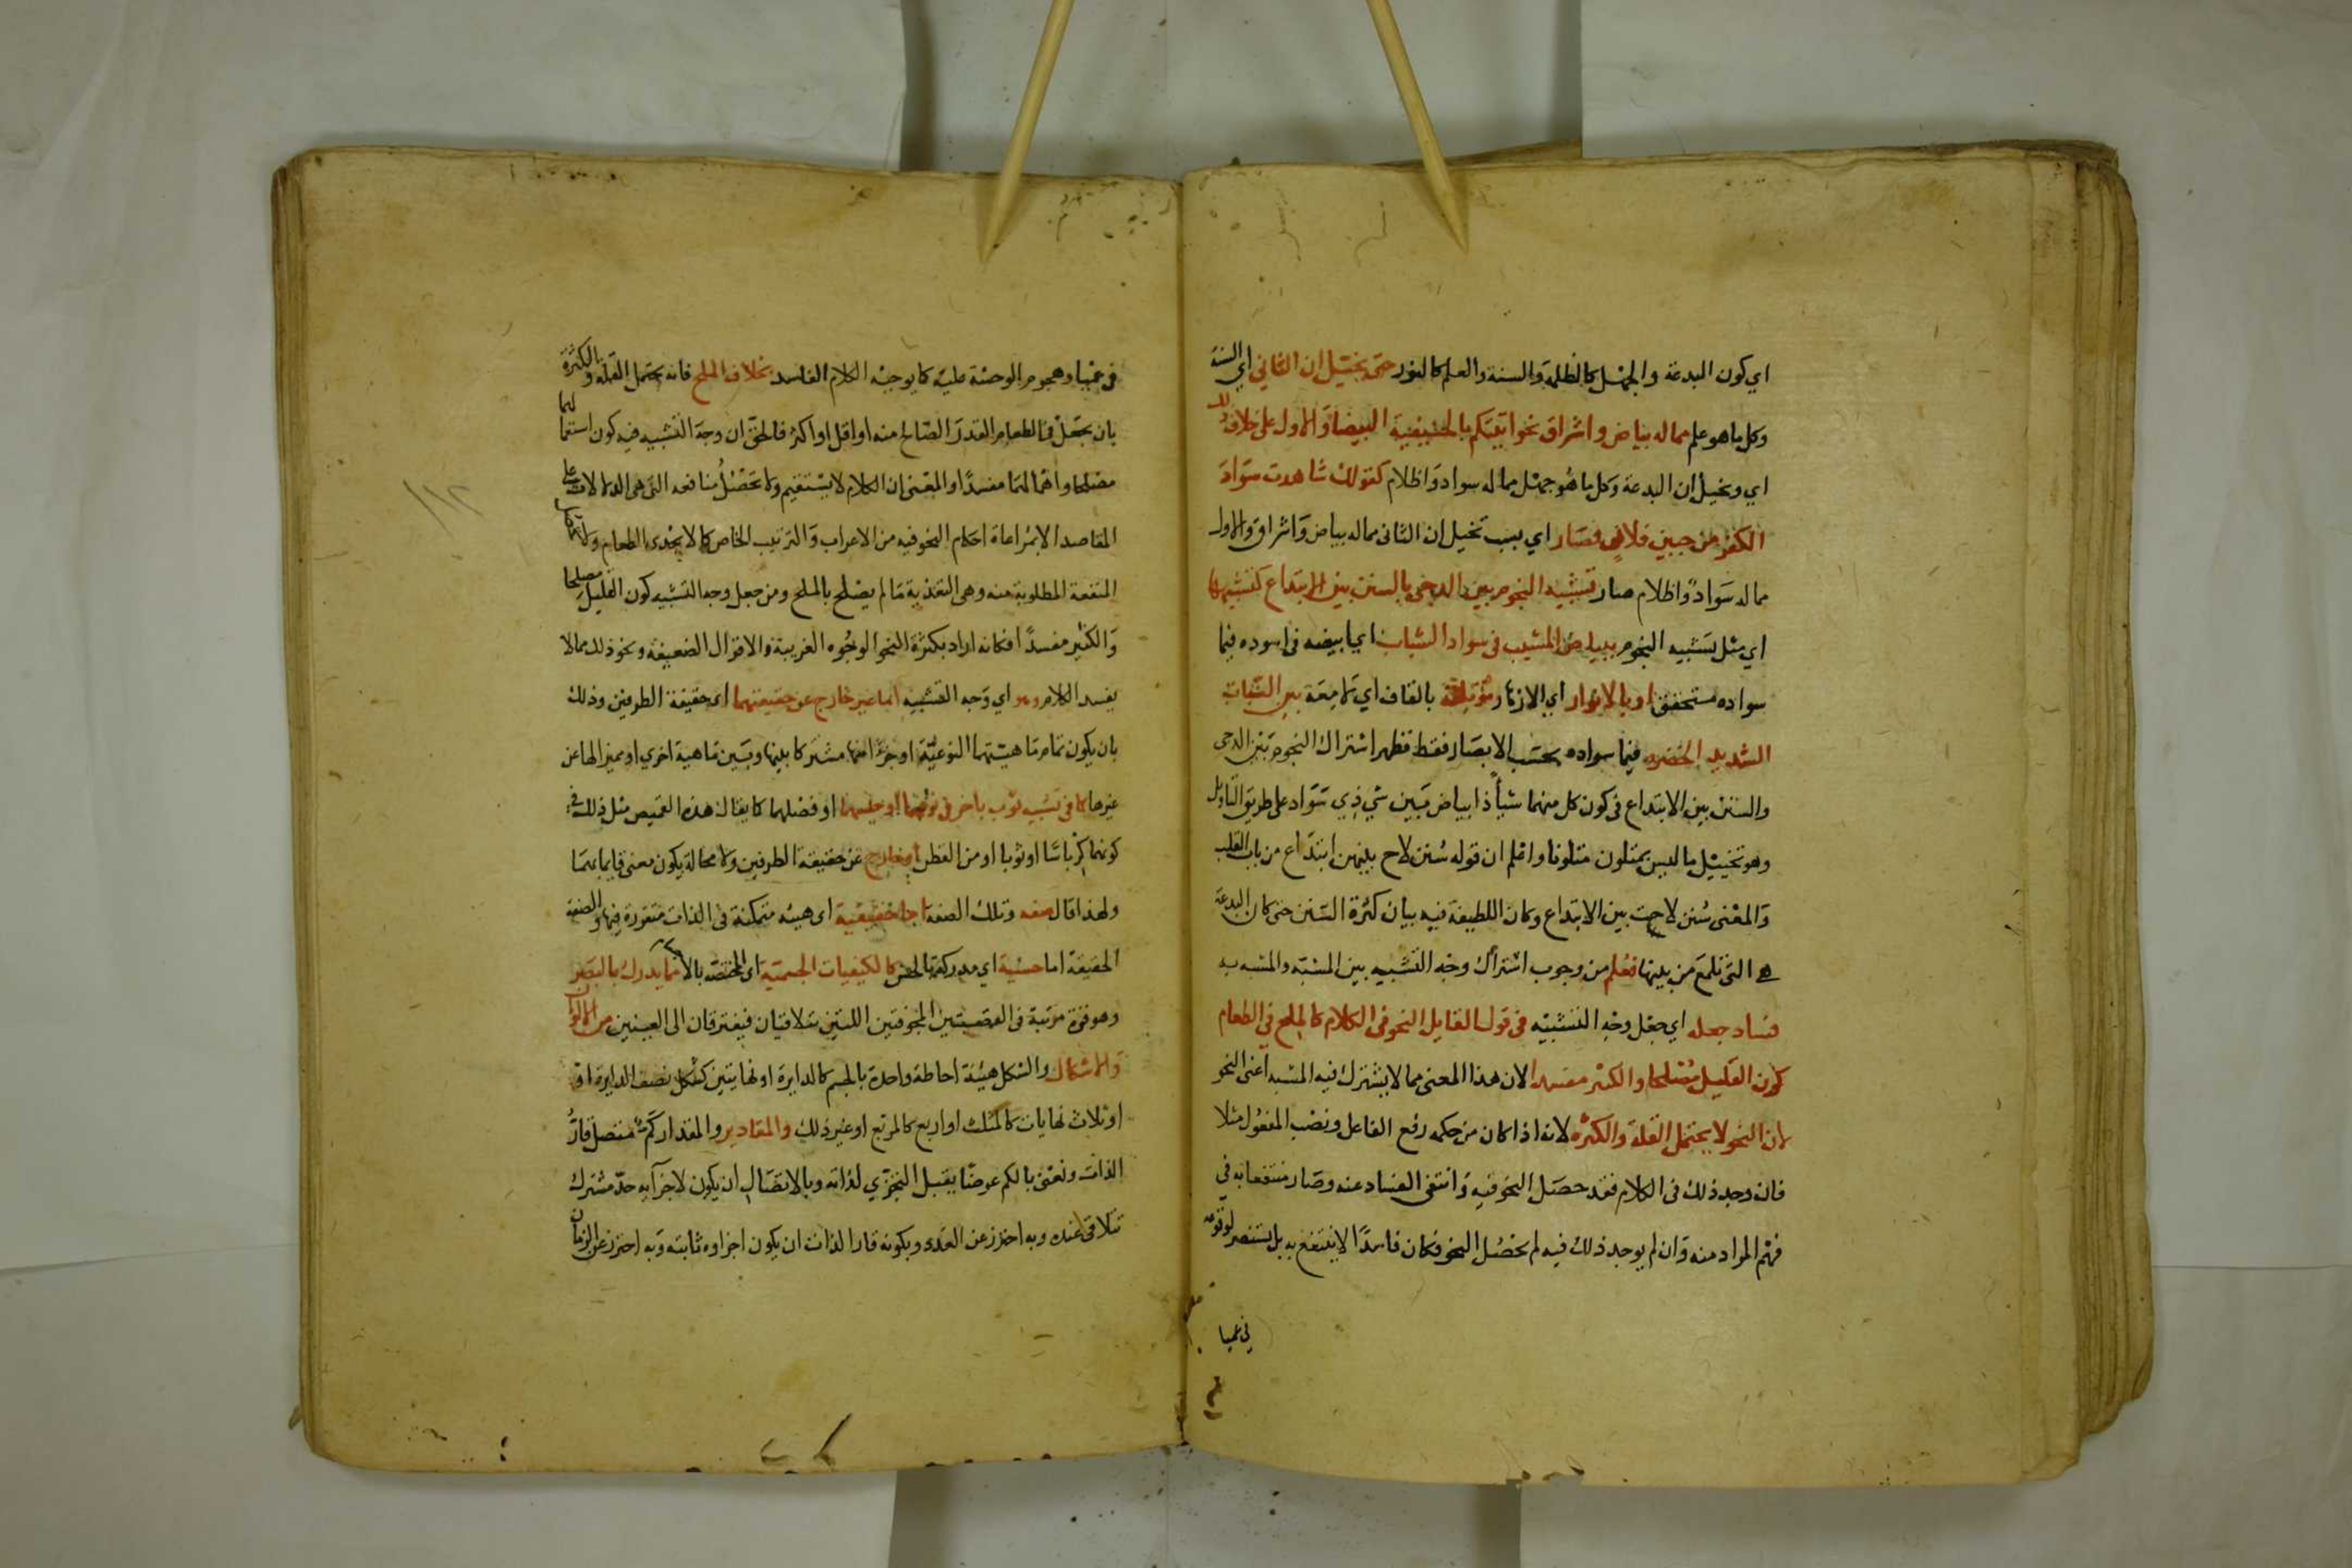 اي كون البدعة والجهل كالظلمة والسنة والعلم كالنور حتى يخيل ان الثاني اي السنة
وكل ما هو علم مما له بياض واشراق نحو اتيتكم بالحنيفية البيضا والاول على خلاف ذلك
اي ويخيل ان البدعة وكل ما هو جهل مما له سواد واظلام كقولك شاهدت سواد
الكفر من جبين فلان فصار اي بسبب تخيل ان الثاني مما له بياض واشراق والاول
مما له سواد واظلام صار تشبيه النجوم بين الدجى بالسنن بين الابتداع كتشبيهها
اي مثل تشبيه النجوم ببياض المشيب في سواد الشباب اي ابيضه في اسوده فيما
سواده متحقق او بالانوار اي الازهار مؤتلقة بالقاف اي لامعة بين النبات
الشديد الخضره فيما سواده بحسب الابصار فقط فظهر اشتراك النجوم بين الدجى
والسنن بين الابتداع في كون كل منهما شيأ ذا بياض بين شي ذي سواد على طريق التاويل
وهو تخييل ما ليس بمتلون متلونا واعلم ان قوله سنن لاح بينهن ابتداع من باب القلب
والمعنى سنن لاحت بين الابتداع وكان اللطيفة فيه بيان كثرة السنن حتى كان البدعة
هي التي تلمع من بينها فعلم من وجوب اشتراك وجه التشبيه بين المشبه والمشبه به
فساد جعله اي جعل وجه التشبيه في قول القايل النحو في الكلام كالملح في الطعام
كون القليل مصلحا والكثير مفسدا لان هذا المعنى مما لا يشترك فيه المشبه اعني النحو
لان النحو لا يحتمل القلة والكثره لانه اذا كان من حكمه رفع الفاعل ونصب المفعول مثلا
فان وجد ذلك في الكلام فقد حصل النحو فيه وانتفى الفساد عنه وصار منتفعا به في
فهم المراد منه وان لم يوجد ذلك فيه لم يحصل النحو فكان فاسدا لا ينتفع به بل يستضر لوقوعه
في عميا
في عميا وهجوم الوحشة عليه كما يوجبه الكلام الفاسد بخلاف الملح فانه يحتمل القلة والكثرة
بان يجعل في الطعام القدر الصالح منه او اقل او اكثر فالحق ان وجه التشبيه فيه كون استعمالهما
مصلحا واهمالهما مفسدا والمعنى ان الكلام لا يستقيم ولا تحصل منافعه التي هي الدلالات على
المقاصد الا بمراعاة احكام النحو فيه من الاعراب والترتيب الخاص كما لا يجدي الطعام ولا تحصل
المنفعة المطلوبة منه وهي التغذية ما لم يصلح بالملح ومن جعل وجه التشبيه كون القليل مصلحا
والكثير مفسدا فكانه اراد بكثرة النحو الوجوه الغريبة والاقوال الضعيفة ونحو ذلك مما لا
يفسد الكلام وهو اي وجه التشبيه اما غير خارج عن حقيقتهما اي حقيقة الطرفين وذلك
بان يكون تمام ماهيتهما النوعية او جزءا منها مشتركا بينها وبين ماهية اخري او مميزا لها عن
غيرها كما في تشبيه ثوب باخر في نوعهما او جنسهما او فصلهما كما يقال هذا القميص مثل ذلك في
كونهما كرباسا او ثوبا او من القطن او خارج عن حقيقة الطرفين ولا محالة يكون معنى قايما بهما
ولهذا قال صفه وتلك الصفة اما حقيقية اي هيئه متمكنة في الذات متقررة فيها والصفة
الحقيقة اما حسية اي مدركة بالحس كالكيفيات الجسمية اي المختصة بالاجسام مما يدرك بالبصر
وهو قوة مرتبة في العصبتين المجوفتين اللتين تتلاقيان فيفترقان الى العينين من الالوان
والاشكال والشكل هيئة احاطة واحدة بالجسم كالدايرة او نهايتين كشكل نصف الدايرة او
او ثلاث نهايات كالمثلث او اربع كالمربع او غير ذلك والمقادير والمقدار كم متصل قار
الذات ونعني بالكم عرضا يقبل التجزي لذاته وبالاتصال ان يكون لاجزآيه حد مشترك
تتلاقى عنده وبه احترز عن العدد وبكونه قار الذات ان يكون اجزاوه ثابته وبه احترز عن الزمان
١١٢